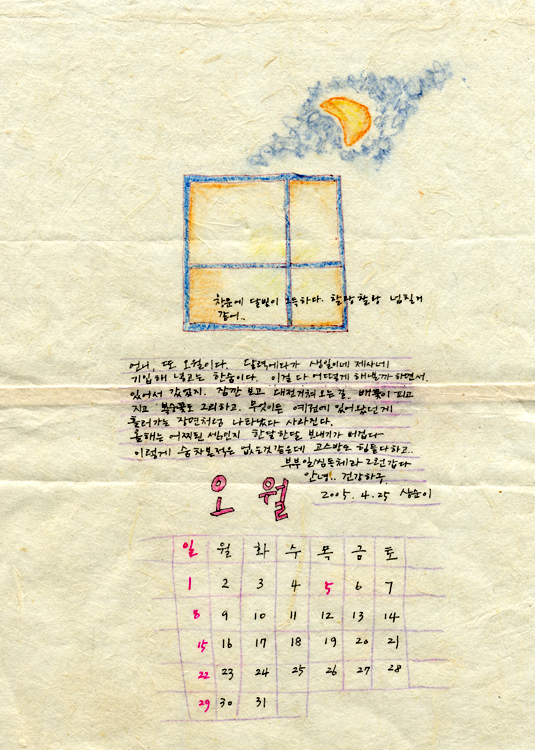 창문에 달빛이 그득하다. 찰랑찰랑 넘칠거
같어..
언니, 또 오월이다. 달력에다가 생일이네 제사네
기입해 넣고는 한숨이다. 이걸 다 어떻게 해낼까 하면서.
있어서 갔었지. 잠깐 보고 대전거쳐 오는길. 배꽃이 피고
지고 복숭꽃도 그러하고. 무엇이든 예전에 있어왔던게
흘러가는 장면처럼 나타났다 사라진다.
올해는 어찌된 셈인지 한달한달 보내기가 버겁다
이렇게 농차보적은 없는것같은데 고스방도 힘들다하고..
부부일심동체라 그런갑다
안녕.. 건강하구.
2005. 4. 25 상순이
오 월
일 월 화 수 목 금 토
1 2 3 4 5 6 7
8 9 10 11 12 13 14
15 16 17 18 19 20 21
22 23 24 25 26 27 28
29 30 31